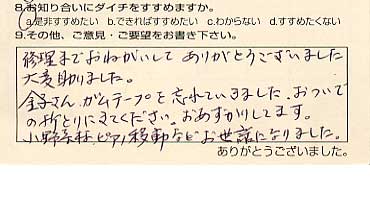 8.お知り合いにダイチをすすめますか。
a.是非すすめたい b.できればすすめたい c.わからない d.すすめたくない
9.その他、ご意見・ご要望をお書き下さい。
修理までおねがいして ありがとうございました
大変助りました。
金子さん、ガムテープを忘れていきました、おついで
の折とりにきてください。おあずかりしてます。
小野寺様、ピアノ移動などお世話になりました。
ありがとうございました。